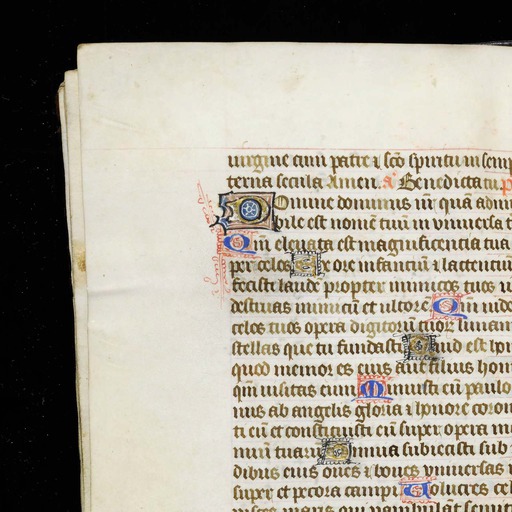 uirgine cum patre ⁊ sc̄o spiritu in semp
terna secula Amen. a Benedicta tu. p
Domine dominus nr̄ quā admi
bile est nomē tuū in vniuersa t
Qm̄ eleuata est magnificentia tua
per celos Ex ore infantiū ⁊ lactentiū
fecisti laudē propter inimicos tuos u
destruas inimicū et ultorē Qm̄ uide
celos tuos opera digitorū tuoꝝ lunam
stellas que tu fundasti Quid est ho
quod memor es eius aut filius hom
qm̄ uisitas eum Minuisti eū paulo
nus ab angelis gloria ⁊ honore coron
ti eū et constituisti eū super opera m
nuū tuarū Omnia subiecisti sub
dibus eius oues ⁊ boues vniuersas
super et pecora campi Uolucres cel
pisces maris qui pambulāt semit